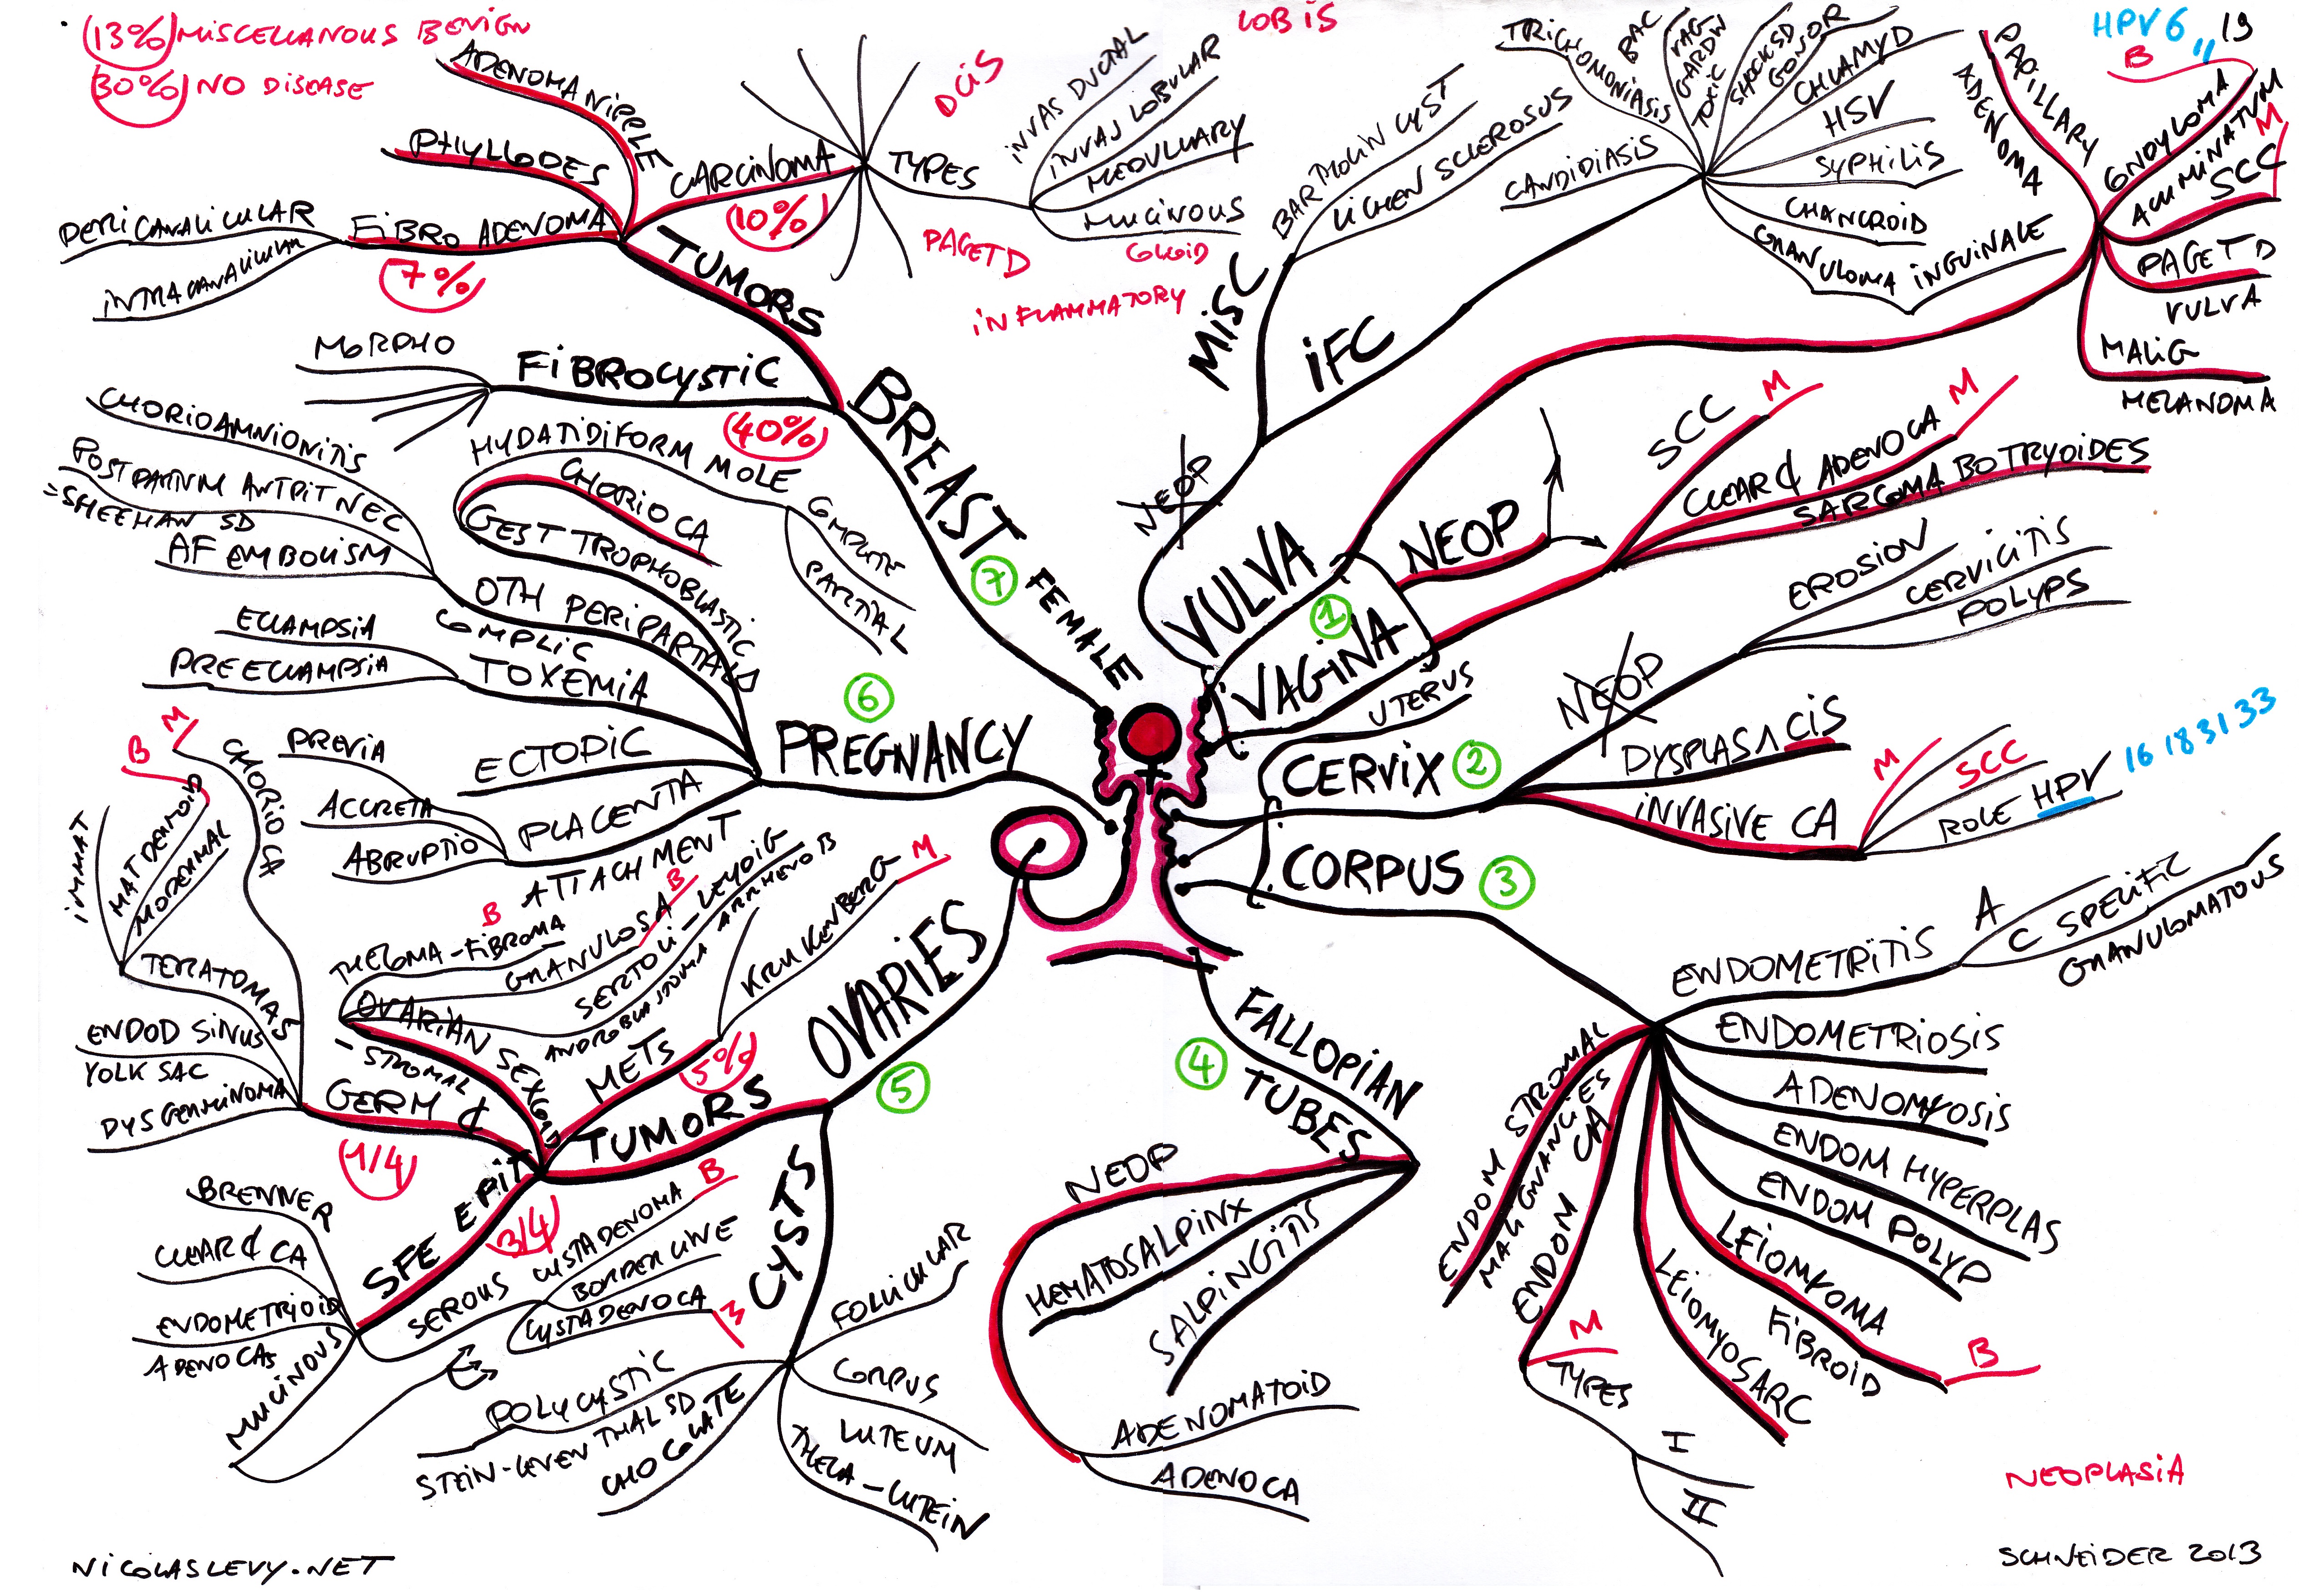 13% MISCELLANOUS BENIGN
30% NO DISEASE
ADENOMA NIPPLE
PHYLLODES
FIBRO ADENOMA
7%
PERICANALICULAR
INTRACANALICULAR
CARCINOMA
10%
TYPES
DCIS
LOBIS
INVAS DUCTAL
INVAS LOBULAR
MEDULLARY
MUCINOUS
COLLOID
PAGET D
INFLAMMATORY
TUMORS
FIBROCYSTIC
40%
MORPHO
BREAST
7
FEMALE
HYDATIDIFORM MOLE
COMPLETE
PARTIAL
CHORIO CA
GEST TROPHOBLASTIC D
CHORIOAMNIONITIS
POSTPARTUM ANT PIT NEC
=SHEEHAN SD
AF EMBOLISM
OTH PERIPARTAL
COMPLIC
ECLAMPSIA
PREECLAMPSIA
TOXEMIA
ECTOPIC
PREVIA
ACCRETA
ABRUPTIO
PLACENTA
ATTACHMENT
6
PREGNANCY
MISC
BARTHOLIN CYST
LICHEN SCLEROSUS
IFC
CANDIDIASIS
TRICHOMONIASIS
BAC
VAG
GARDN
TOXIC
SHOCK SD
GONOR
CHLAMYD
HSV
SYPHILIS
CHANCROID
GRANULOMA INGUINALE
NEOP
VULVA
PAPILLARY
ADENOMA
HPV 6 11 19
B
CONDYLOMA
ACUMINATUM
M
SCC
PAGET D
VULVA
MALIG
MELANOMA
1
NEOP
VAGINA
SCC
M
CLEAR ¢ ADENO CA
M
SARCOMA BOTRYOIDES
UTERUS
CERVIX
2
NEOP
EROSION
CERVICITIS
POLYPS
DYSPLASIA CIS
INVASIVE CA
M
SCC
ROLE HPV
16 18 31 33
CORPUS
3
ENDOMETRITIS
A
C SPECIFIC
GRANULOMATOUS
ENDOMETRIOSIS
ADENOMYOSIS
ENDOM HYPERPLAS
ENDOM POLYP
LEIOMYOMA
FIBROID
B
LEIOMYOSARC
ENDOM CA
M
TYPES
I
II
ENDOM STROMAL
MALIGNANCIES
FALLOPIAN
TUBES
4
NEOP
HEMATOSALPINX
SALPINGITIS
ADENOMATOID
ADENOCA
OVARIES
5
TUMORS
METS
5%
KRUKENBERG
M
OVARIAN SEX CORD
- STROMAL
THECOMA - FIBROMA
B
GRANULOSA
B
SERTOLI - LEYDIG
ANDROBLASTOMA ARRHENOB
GERM ¢
1/4
CHORIO CA
M
TERATOMAS
IMMAT
MAT DERMOID
B
MODERMAL
ENDOD SINUS
YOLK SAC
DYSGERMINOMA
SFE EPIT
3/4
BRENNER
CLEAR ¢ CA
ENDOMETRIOID
ADENOCAS
MUCINOUS
SEROUS
CYSTADENOMA
B
BORDERLINE
CYSTADENOCA
M
CYSTS
FOLLICULAR
CORPUS
LUTEUM
THECA - LUTEIN
POLYCYSTIC
STEIN - LEVENTHAL SD
CHOCOLATE
NEOPLASIA
NICOLASLEVY.NET
SCHNEIDER 2013